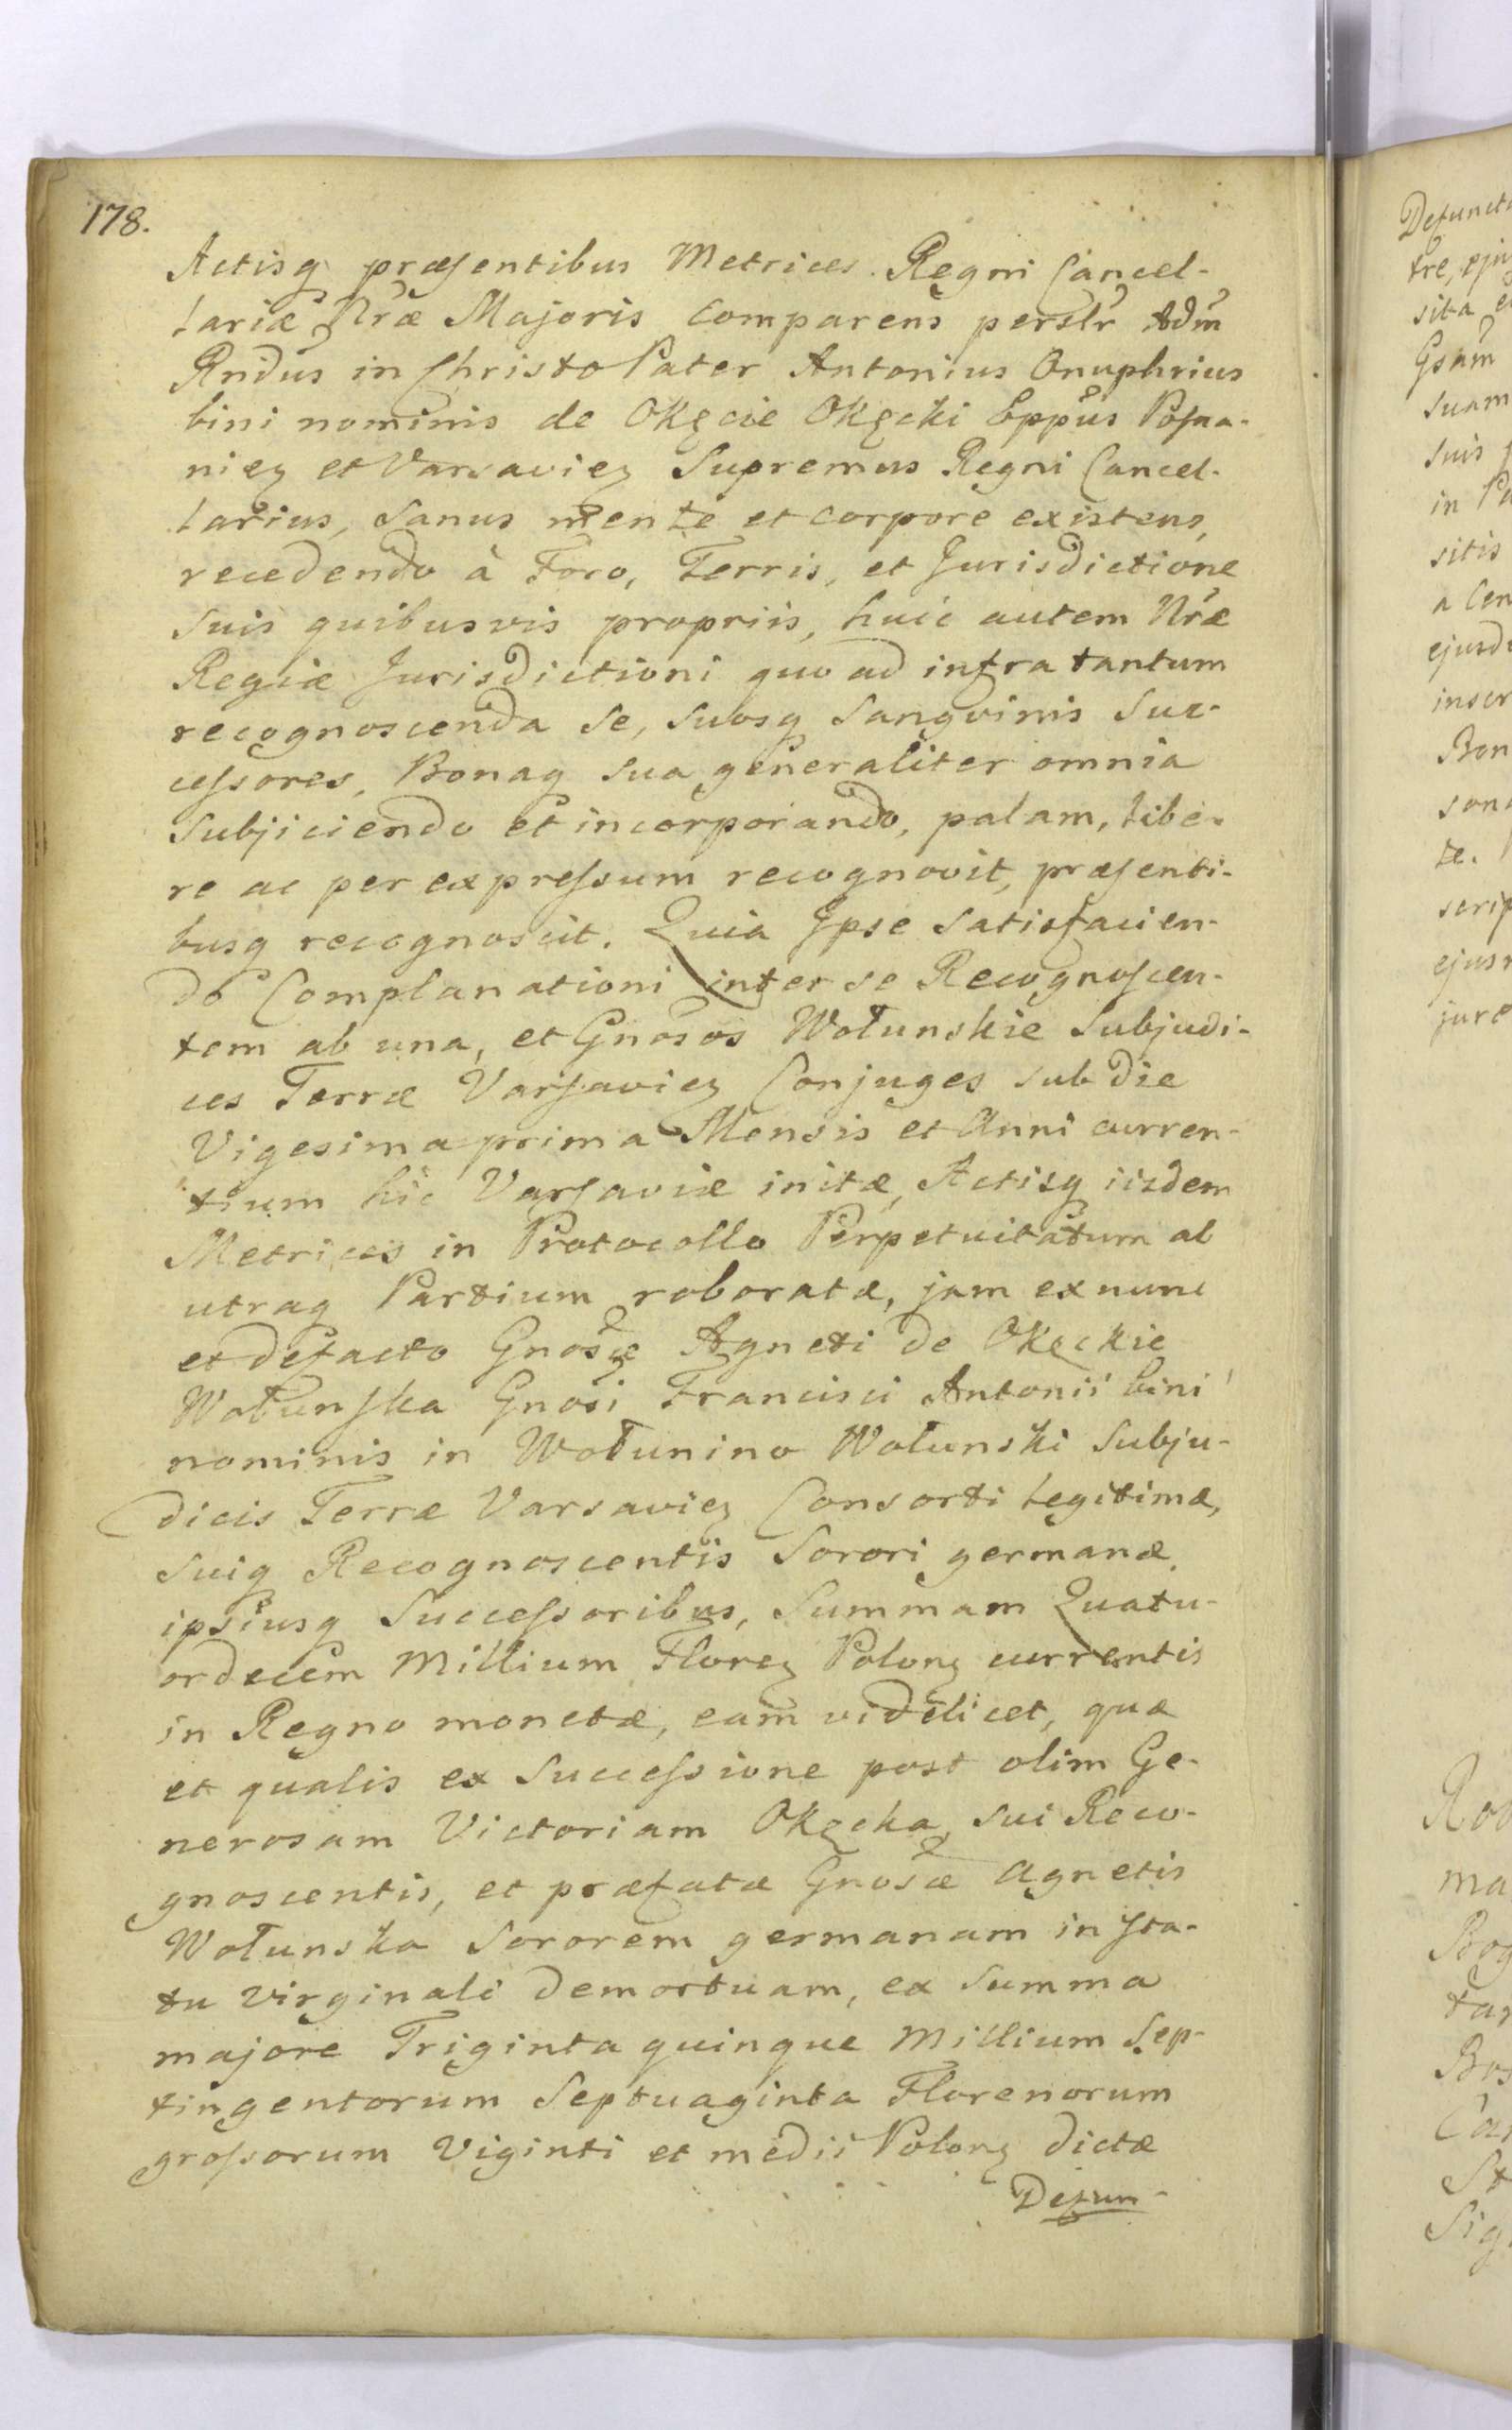 178.
Actisq præsentibus Metrices Regni Cancel-
lariæ Nræ Majoris comparens perslr Adm
Rndus in Christo Pater Antonius Onuphrius
bini nominis de Okęcie Okęcki Eppus Posna-
nieȝ et Varsavieȝ Supremus Regni Cancel-
larius, sanus mente et corpore existens,
recedendo à Foro, Terris, et Jurisdictione
suis quibusvis propriis, huic autem Nræ
Regiæ Jurisdictioni quo ad infra tantum
recognoscenda se, suosq sangvinis suc-
cessores, Bonaq sua generaliter omnia
subjiciendo et incorporando, palam, libe-
re ac per expressum recognovit, præsenti-
busq recognoscit. Quia Ipse satisfacien-
do Complanationi inter se Recognoscen-
tem ab una, et Gnosos Wołunskie Subjudi-
ces Terræ Varsavieȝ Conjuges sub die
Vigesima prima Mensis et Anni curren-
tium hic Varsaviæ initæ, Actisq iisdem
Metrices in Protocollo Perpetuitatum ab
utraq Partium roboratæ, jam ex nunc
et defacto Gnosæ Agneti de Okęckie
Wołunska Gnosi Francisci Antonii bini
nominis in Wołunino Wołunski Subju-
dicis Terræ Varsavieȝ Consorti legitimæ,
suiq Recognoscentis Sorori germanæ,
ipsiusq Successoribus, Summam Quatu-
ordecem Millium Floreȝ Polonȝ currentis
in Regno monetæ, eam videlicet, quæ
et qualis ex Successione post olim Ge-
nerosam Victoriam Okęcka, sui Reco-
gnoscentis, et præfatæ Gnosæ Agnetis
Wołunska Sororem germanam in sta-
tu virginali demortuam, ex Summa
majore Triginta quinque Millium Sep-
tingentorum Septuaginta Florenorum
grossorum Viginti et medii Polonȝ dictæ
Defun-
Defuncta
tre, eju
sita e
Gsam
suam
suis
in Pa
sitis
a Cen
ejusd
inscr
Bon
son
te.
scrip
ejus
jure
Rob
ma
Bog
tar
Bos
Ca
St
Sig